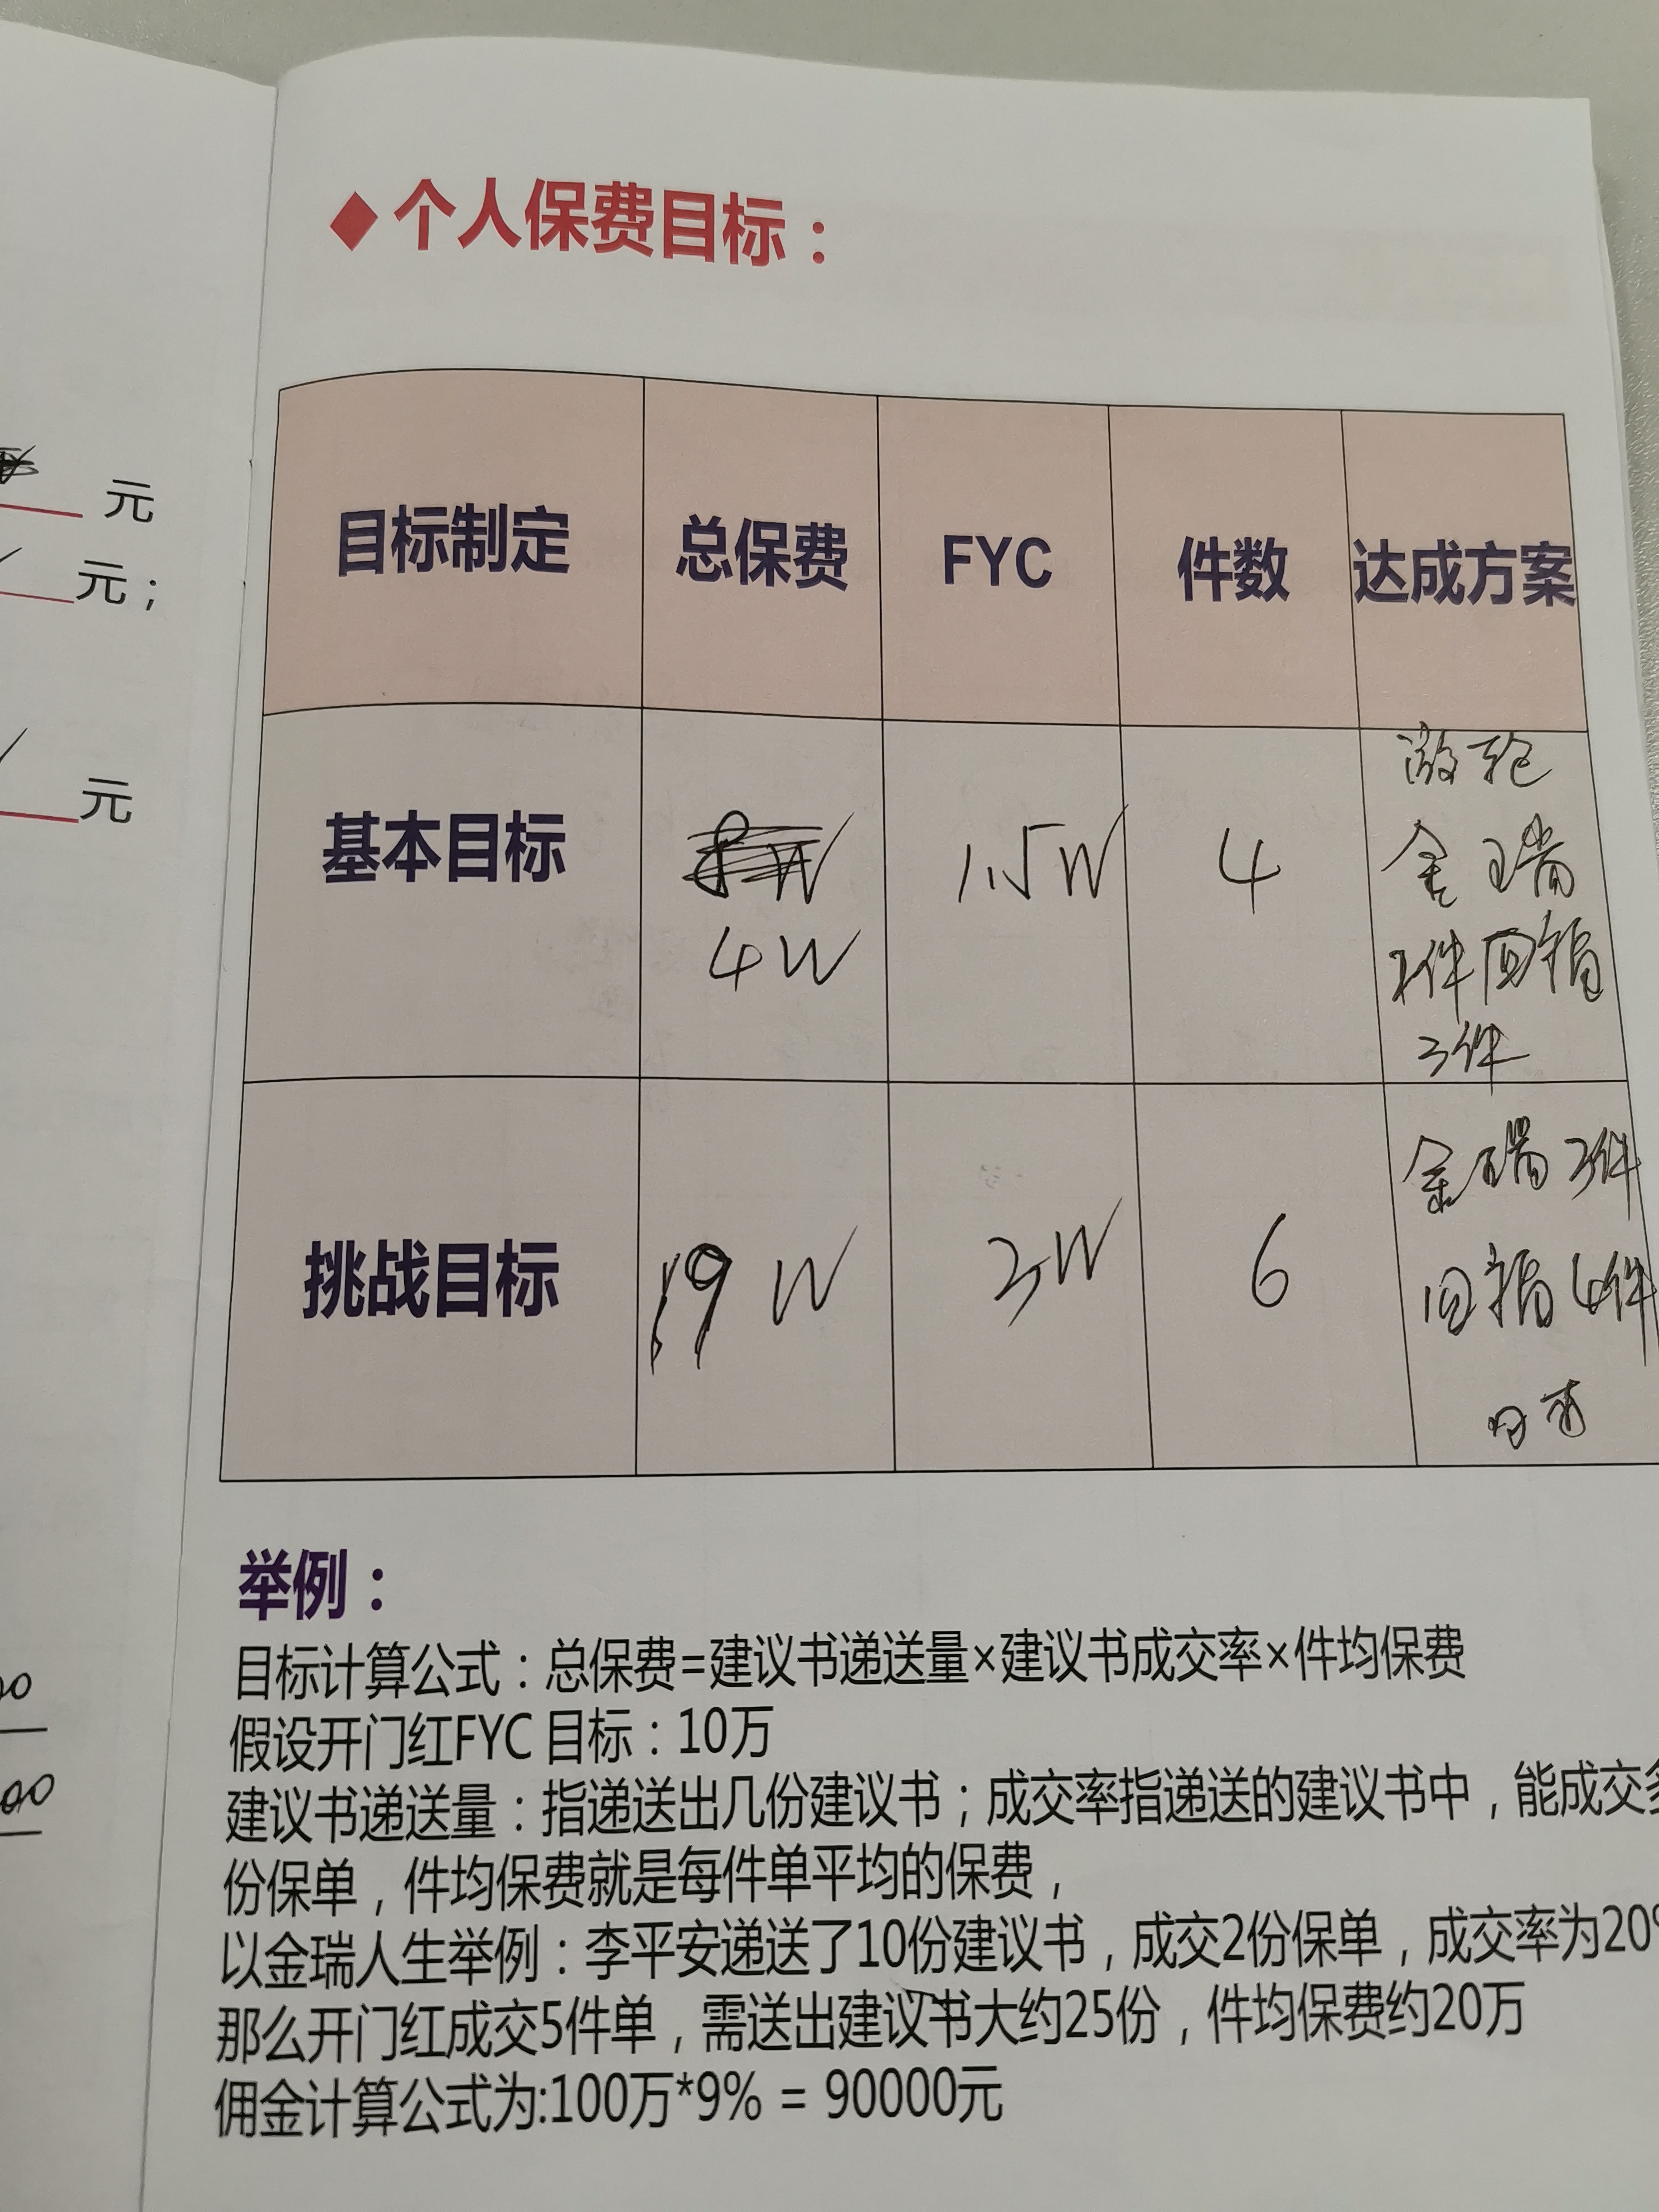 ◆个人保费目标：
元
元；
元
目标制定 总保费 FYC 件数 达成方案
基本目标 4W 1.5W 4
金瑞
件
3件
挑战目标 19W 3W 6
金瑞3件
4件
举例：
目标计算公式：总保费=建议书递送量×建议书成交率×件均保费
假设开门红FYC 目标：10万
建议书递送量：指递送出几份建议书；成交率指递送的建议书中，能成交多
份保单，件均保费就是每件单平均的保费，
以金瑞人生举例：李平安递送了10份建议书，成交2份保单，成交率为20%
那么开门红成交5件单，需送出建议书大约25份，件均保费约20万
佣金计算公式为:100万*9% = 90000元